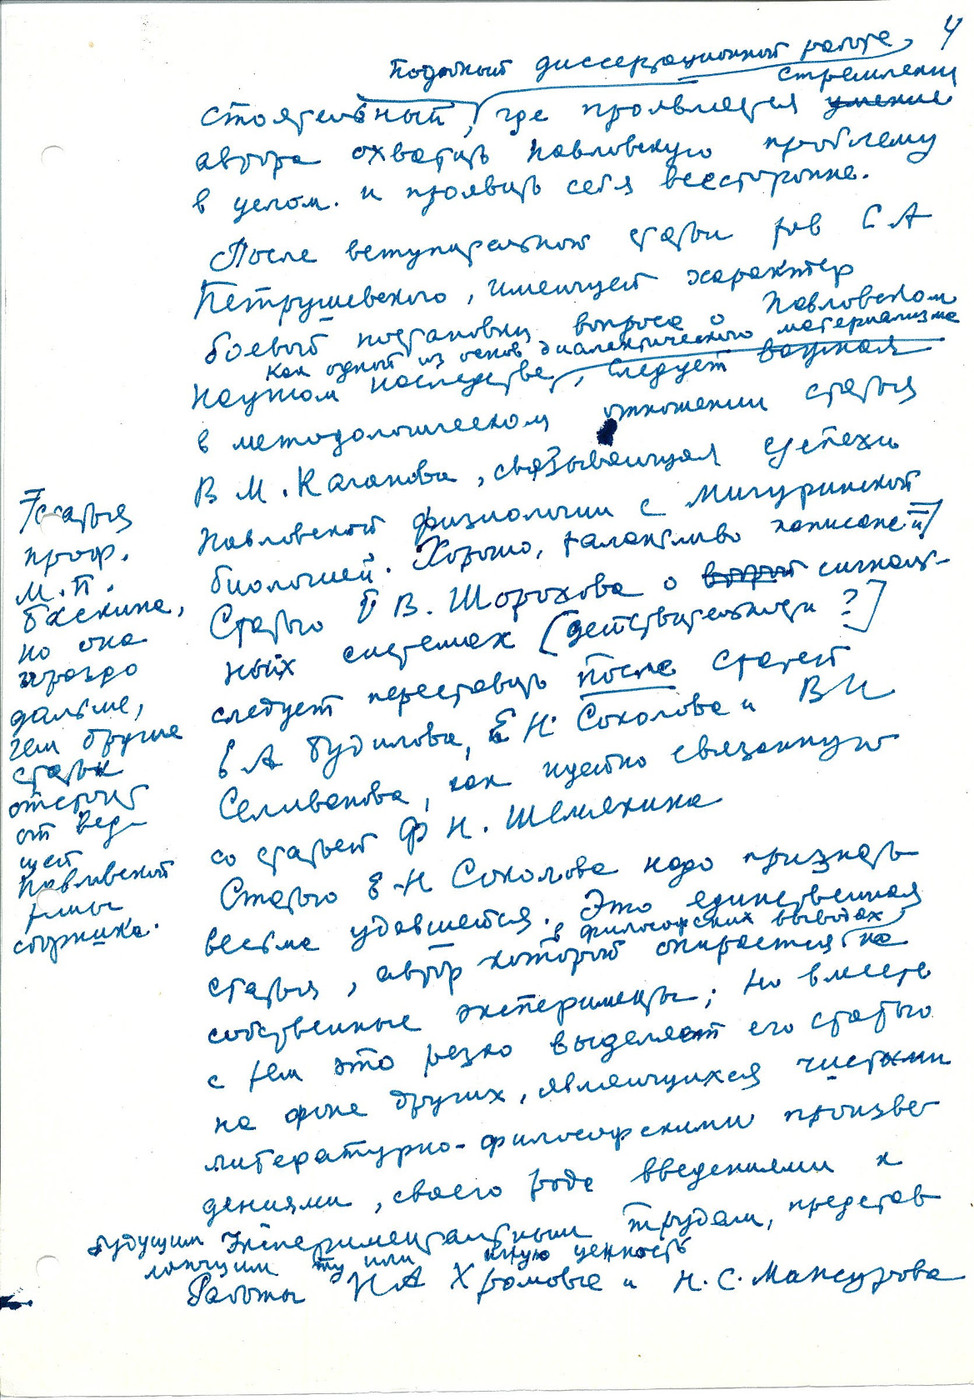 4
подобный диссертационной работе,
стремление
стоятельный, где проявляется умение
автора охватить павловскую проблему
в целом. и проявить себя всесторонне.
После вступительной статьи тов С А
Петрушевского, имеющей характер
боевой постановки вопроса о Павловском
как одной из основ диалектического материализма
научном наследстве, следует важная
в методологическом отношении статья
В М. Каганова, связывающая успехи
Павловской физиологии с Мичуринской
биологией. Хорошо, талантливо написанную
Статью Е В. Шорохова о второй сигналь-
ных системах [действительности ?]
следует переставить после статей
Е А Будилова, Е Н. Соколова и В И
Селиванова, как идейно связанную
со статьей Ф Н. Шемякина
Статью Е Н Соколова надо признать
весьма удавшейся. Это единственная
в философских выводах
статья, автор которой опирается на
собственные эксперименты; но вместе
с тем это резко выделяет его статью
на фоне других, являющихся чистыми
литературно-философскими произве
дениями, своего рода введениями к
будущим экспериментальным трудам, представ
ляющим ту или иную ценность
Работы И А Хромовые и Н. С. Мансурова
Статья
проф.
М. П.
Баскина,
но она
гораздо
дальше,
чем другие
статьи
отстоит
от веду-
щей
Павловской
темы
сборника.